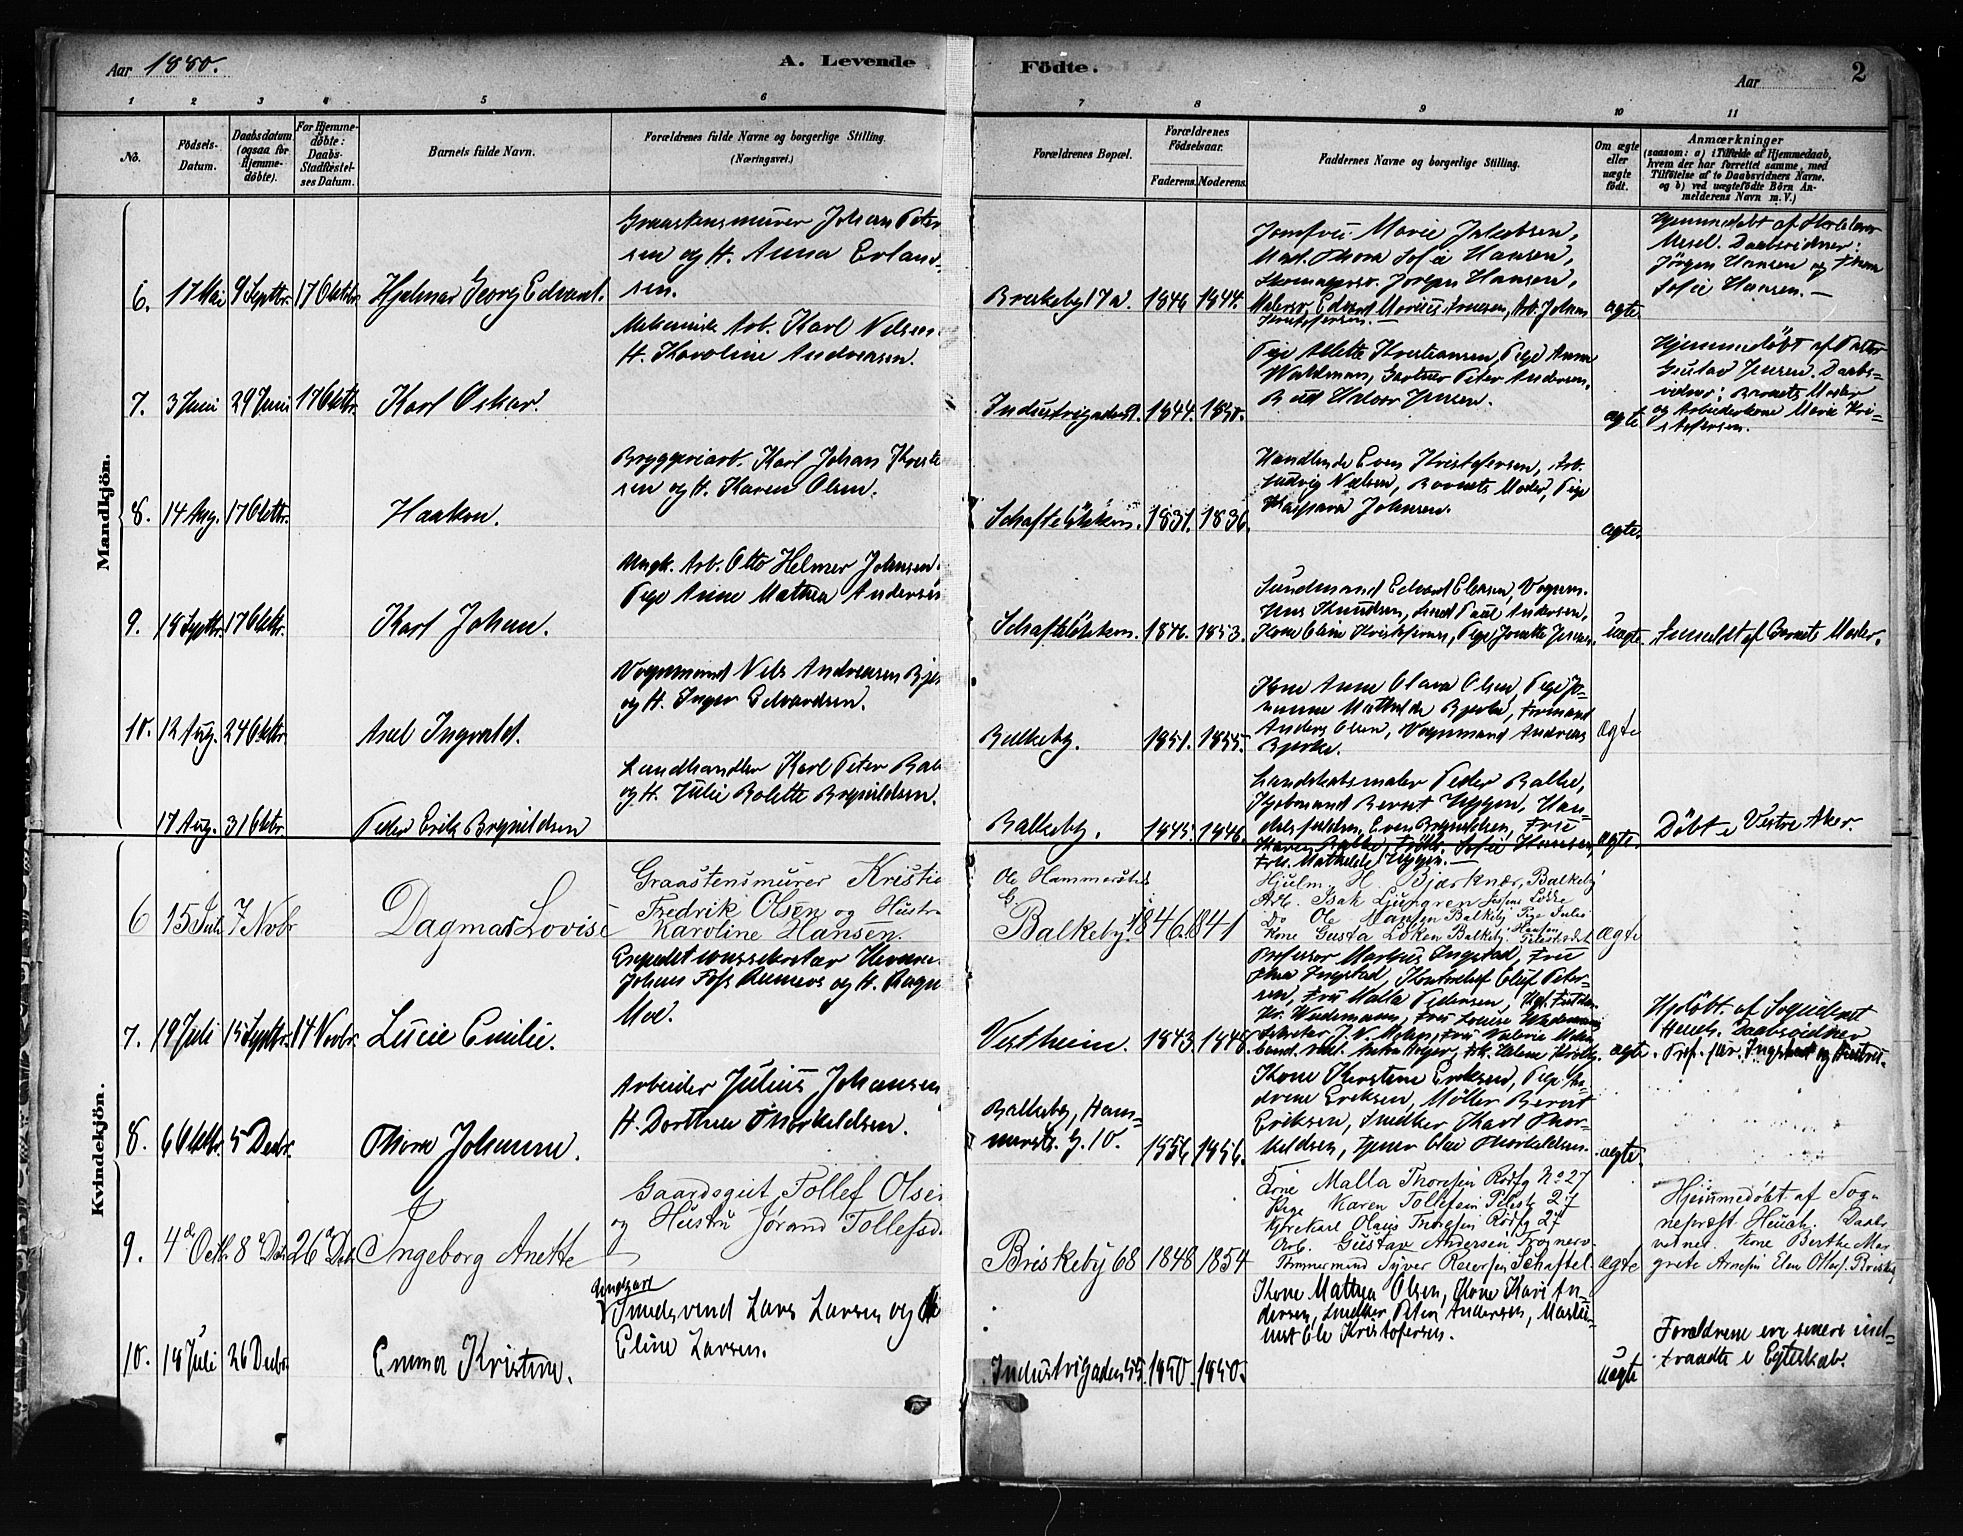 Aar 1880.
A. Levende
Födte.
Aar
2
1 2 3 4 5 6 7 8 9 10 11
No.
Födsels-
Datum.
Daabsdatum
(ogsaa for
Hjemme-
döbte).
For Hjemme-
döbte:
Daabs-
Stadfæstel-
ses Datum.
Barnets fulde Navn.
Forældrenes fulde Navne og borgerlige Stilling.
(Næringsvei.)
Forældrenes Bopæl.
Forældrenes
Födselsaar.
Faderens. Moderens.
Faddernes Navne og borgerlige Stilling.
Om ægte
eller
uægte
födt.
Anmærkninger
(saasom: a) i Tilfælde af Hjemmedaab,
hvem der har forrettet samme, med
Tilföielse af to Daabsvidners Navne,
og b) ved uægtefödte Börn An-
melderens Navn m. V.)
Mandkjön.
6. 17 Mai 9 Septbr. 17 Oktbr. Hjalmar Georg Edvard.
Graastensmurer Johan Peter
sen og H. Anna Erland-
sen.
Briskeby 17a. 1846 1844.
Jomfru Marie Jakobsen,
Mad. Thora Sofie Hansen,
Skomagersv. Jörgen Hansen,
Malersv. Edvard Marius Arnesen, Arb. Johan
Kristofersen.
ægte.
Hjemmedöbt af
Daabsvidner:
Jörgen Hansen og Thora
Sofie Hansen.
7. 3 Juni 29 Juni 17 Oktbr. Karl Oskar.
Mekanisk Arb. Karl Nilsen
H. Karoline Andersen.
Industrigaden 1844. 1850.
Pige Alette Kristiansen, Pige Anna
Waldman, Gartner Peter Andersen,
Halvor Jensen.
ægte.
Hjemmedöbt af Pastor
Gustav Jensen. Daabs-
vidner: Barnets Moder
og Arbeiderkone Marie Kri-
stofersen.
8. 14 Aug. 17 Oktbr. Haakon.
Bryggeriarb. Karl Johan Kristi
sen og H. Karen Olsen.
Schafteløkken. 1831. 1836.
Handlende Even Kristofersen, Arb.
Ludvig Nielsen, Barnets Moder, Pige
Kaspara Johnsen.
ægte.
9. 18 Septbr. 17 Oktbr. Karl Johan.
Ungk. Arb. Otto Helmer Johansen
Pige Anne Mathea Andersen
Schafteløkken. 1846. 1853.
Sundmand Edvard Olsen, Vognm.
Hans Knudsen, Smed Paul Andersen,
Kone Oline Kristofersen, Pige Josette Jensen.
uægte.
Anmeldt af Barnets Moder.
10. 12 Aug. 24 Oktbr. Axel Ingvald.
Vognmand Nils Andreasen Bjer
og H. Inger Edvardsen.
Balkeby. 1851. 1855.
Kone Anne Olava Olsen, Pige Jo-
hanne Mathilde Bjerke, Formand
Anders Olsen, Vognmand Andreas
Bjerke.
ægte
17 Aug. 31 Oktbr. Peder Erik Brynildsen
Landhandler Karl Peter Bal
og H. Julie Bolette Brynildsen.
Balkeby. 1845. 1846.
Landskabsmaler Peder Balke,
Bernt Uggen, Han-
Even Brynildsen, Frue
Karen Balke, Frøk. Sofie Hansen,
Frk. Mathilde Uggen.
ægte.
Döbt i Vestre Aker.
Kvindekjön.
6 15 Juli 7 Novbr Dagmar Lovise
Graastensmurer Kristia
Fredrik Olsen og Hustru
Karoline Hansen.
Ole Hammerstads
G.
Balkeby. 1846. 1841
Hjulm. H. Bjærknær, Balkeby
Arb. Isak Ljungren
Do Ole Hansen Balkeby Pige Julie
Kone Gusta Løken Balkeby Hansen
ægte
7. 19 Juli 15 Septbr. 14 Novbr. Lucie Emilie.
Expeditionssekretær
Johan og H. Ragn
Moe.
Vestheim. 1843. 1848.
Professor Markus Ingstad, Frue
Ingstad, Oluf Peter-
sen, Fru Malla Pedersen,
Fru Louise
ægte.
Hjdöbt af Sognepræst
Heuch. Daabsvidner
Prof. jur. Ingstad og Hustru.
8. 6 Oktbr. 5 Decbr. Thora Johanne.
Arbeider Julius Johansen
H. Dorthea Thorkildsen.
Balkeby, Ham-
merstr. G. 10. 1856 1856.
Kone Kirstine Eriksen, Pige An-
drine Eriksen, Møller Bernt
Eriksen, Snedker Karl Thor-
kildsen, Ole Thorkildsen.
ægte.
9. 4de Octbr 8 Dec 26 Dcb. Ingeborg Anette
Gaardsgut Tollef Olsen
og Hustru Jørand Tollefsd.
Briskeby 68 1848 1854
Kone Malla Thoresen Rødfg No 27
Pige Karen Tollefsen Pilest. 27
Kjørekarl Olaus Thoresen Rødfg 27
Arb. Gustav Andersen Frognerv.
Tømmermand Syver Reiersen Schaftel.
ægte
Hjemmedöbt af Sog-
nepræst Heuch. Daabs
vidner. Kone Berthe Mar
grete Arnesen Elen Ottersen Briskeby
10. 18 Juli 26 Decbr. Emma Kristine.
Ungkarl
Smedsvend Lars Larsen og
Eline Larsen.
Industrigaden 55. 1850. 1850.
Kone Mathea Olsen, Kone Kari An-
dersen, Snedker Peter Andersen, Maski-
nist Ole Kristofersen.
uægte
Forældrene ere senere ind-
traadte i Egteskab.